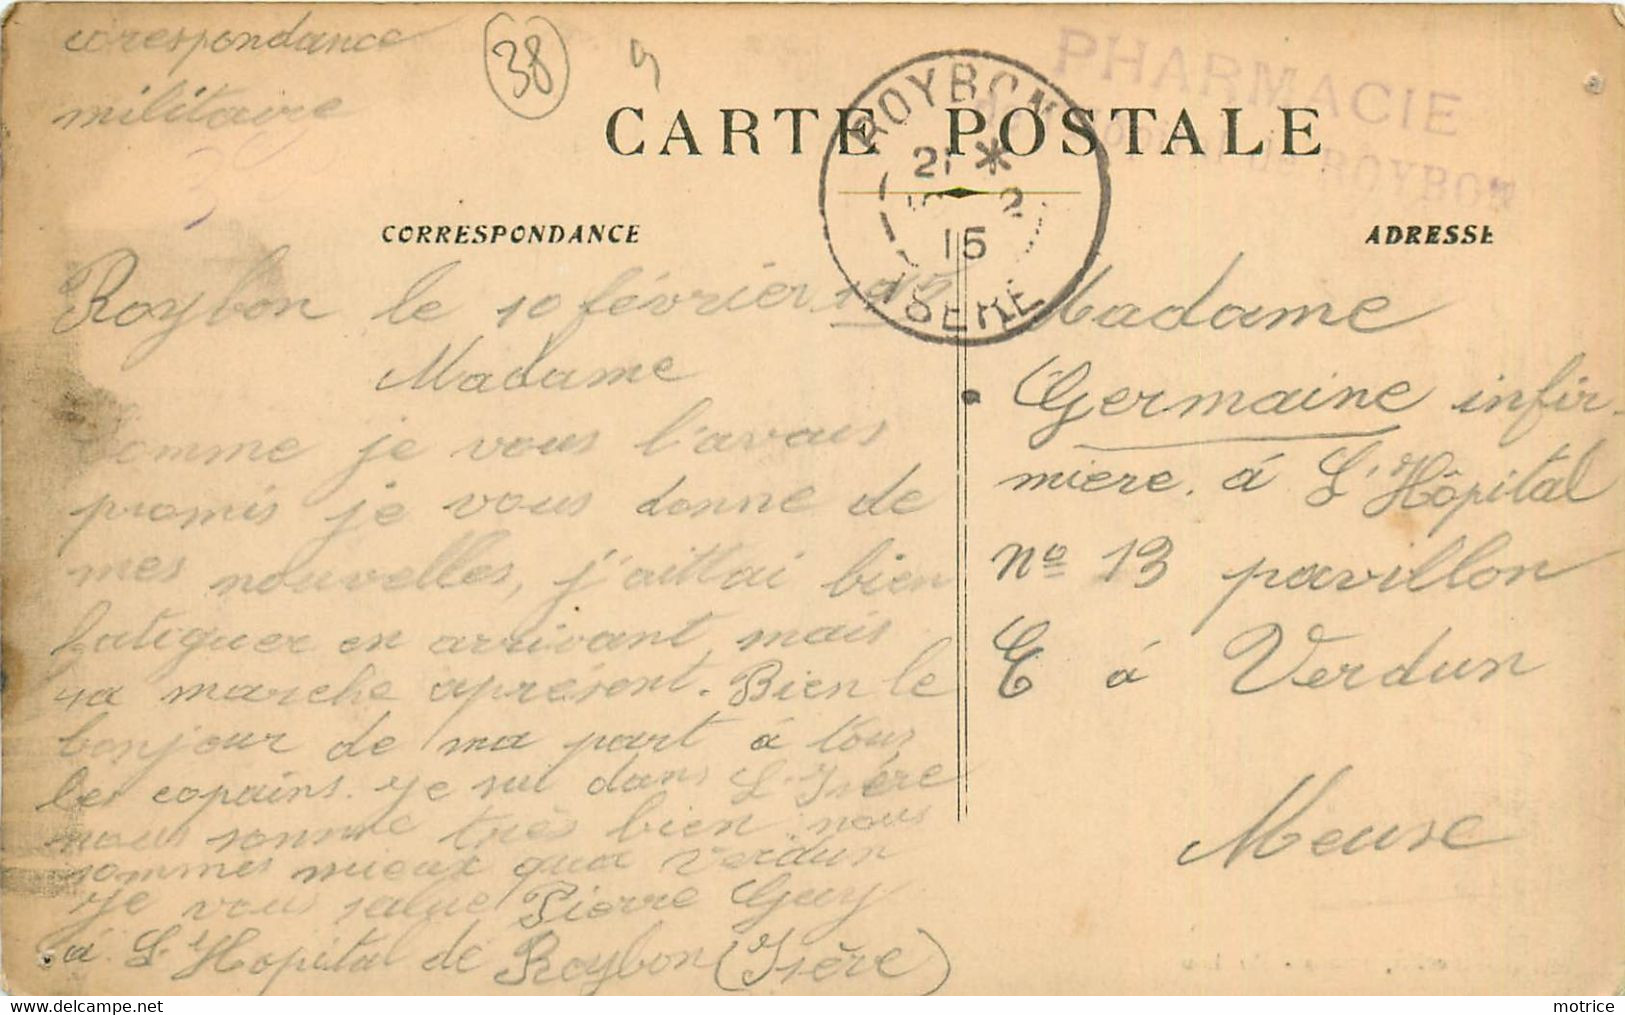 corespondance
militaire
38
PHARMACIE
ROYBON
CARTE POSTALE
ROYBON
21 *
2
15
ISERE
CORRESPONDANCE
ADRESSE
Roybon le 10 février 1915
Madame
Comme je vous l'avais
promis je vous donne de
mes nouvelles, j'aittai bien
fatiguer en arrivant mais
sa marche apresent. Bien le
bonjour de ma part á tous
les copains. Je sui dans L'Isére
nous somme très bien nous
sommes mieux qua Verdun
Je vous salue Pierre Guy
á L'Hopital de Roybon (Isère)
Madame
Germaine infir-
miere. á L'Hôpital
nº 13 pavillon
E á Verdun
Meuse
motrice